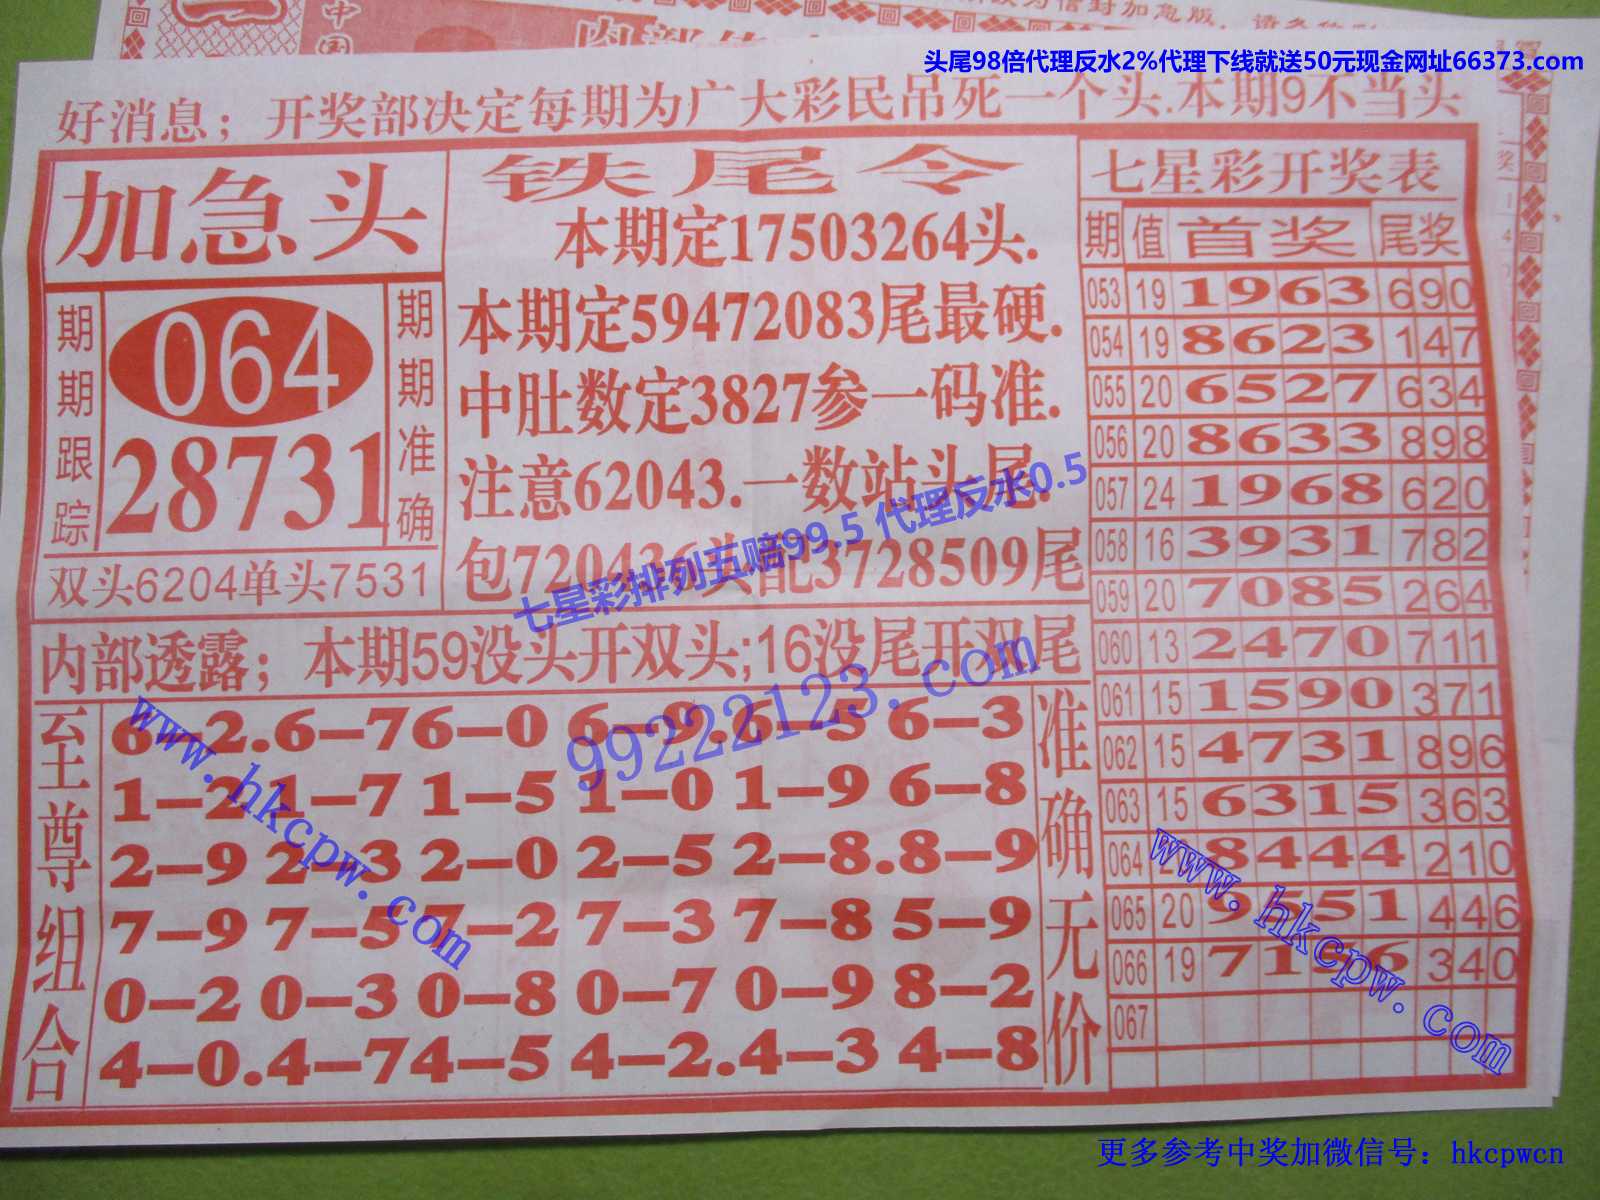 头尾98倍代理反水2%代理下线就送50元现金网址66373.com
好消息；开奖部决定每期为广大彩民吊死一个头.本期9不当头
加急头
期期跟踪
064
28731
期期准确
双头6204单头7531
铁尾令
本期定17503264头.
本期定59472083尾最硬.
中肚数定3827参一码准.
注意62043.一数站头尾.
包720436头配3728509尾
七星彩排列五赔99.5 代理反水0.5
99222123.com
内部透露；本期59没头开双头;16没尾开双尾
至尊组合
6–2.6–76–0 6–9.6–5 6–3
1–2 1–7 1–5 1–0 1–9 6–8
2–9 2–3 2–0 2–5 2–8.8–9
7–9 7–5 7–2 7–3 7–8 5–9
0–2 0–3 0–8 0–7 0–9 8–2
4–0.4–74–5 4–2.4–3 4–8
准确无价
www.hkcpw.com
七星彩开奖表
期 值 首奖 尾奖
053 19 1963 690
054 19 8623 147
055 20 6527 634
056 20 8633 898
057 24 1968 620
058 16 3931 782
059 20 7085 264
060 13 2470 711
061 15 1590 371
062 15 4731 896
063 15 6315 363
064 8444 210
065 20 9551 446
066 19 340
067
www.hkcpw.com
更多参考中奖加微信号：hkcpwcn